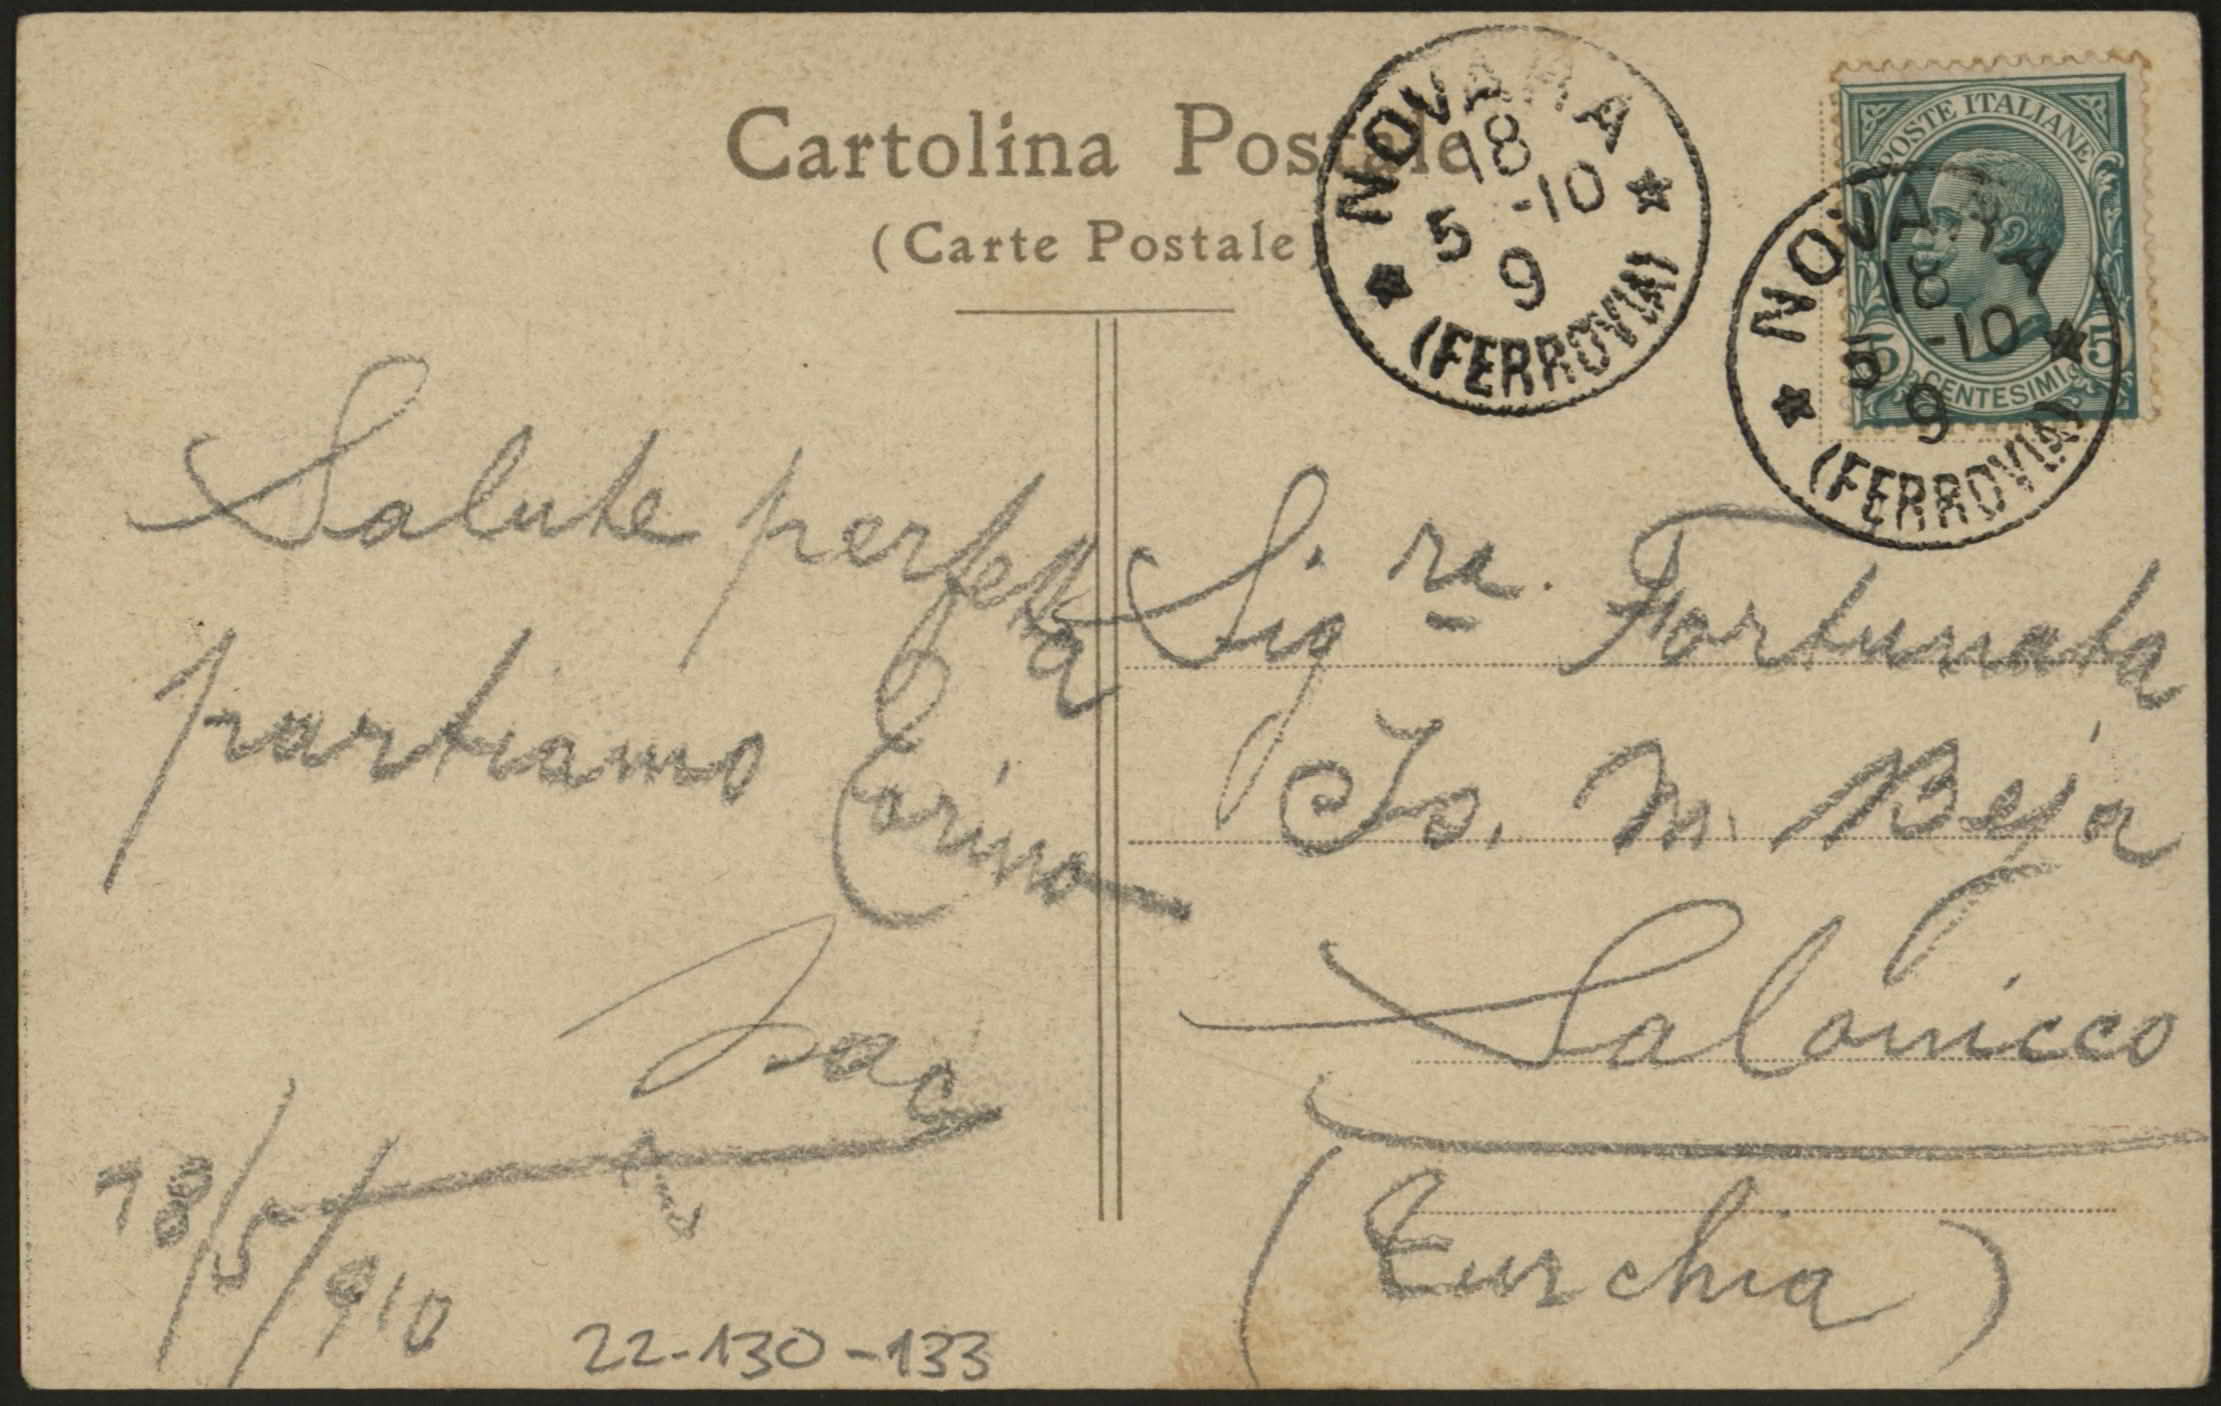 Cartolina Postale
(Carte Postale)
NOVARA
18
5 -10
9
(FERROVIA)
POSTE ITALIANE
5 CENTESIMI 5
NOVARA
18
5 -10
9
(FERROVIA)
Salute perfetta
partiamo
Isac
18/5/910
22-130-133
Sig.ra Fortunata
Is. M. Beja
Salonicco
(Turchia)